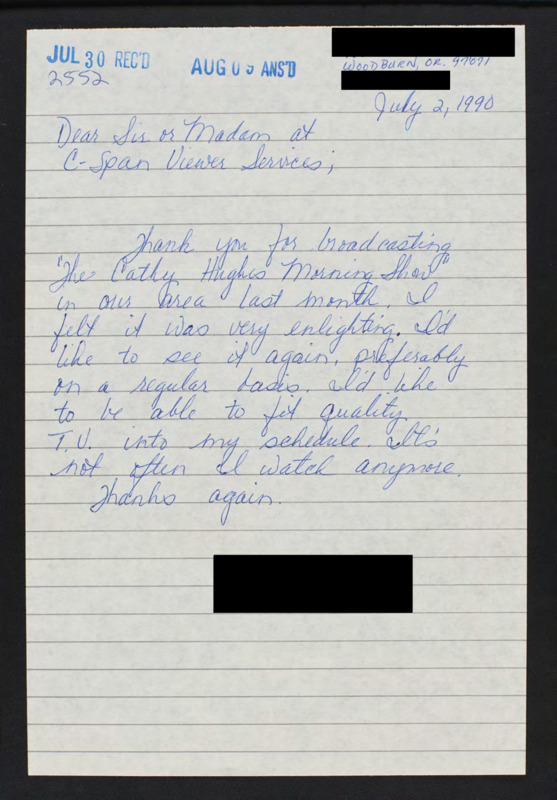 JUL 30 REC'D
AUG 09 ANS'D
2552
WOODBURN, OR. 97071
July 2, 1990
Dear Sir or Madam at
C-Span Viewer Services;
Thank you for broadcasting
"The Cathy Hughes Morning Show"
in our area last month. I
felt it was very enlighting. I'd
like to see it again, preferably
on a regular basis. I'd like
to be able to fit quality
T.V. into my schedule. It's
not often I watch anymore.
Thanks again.